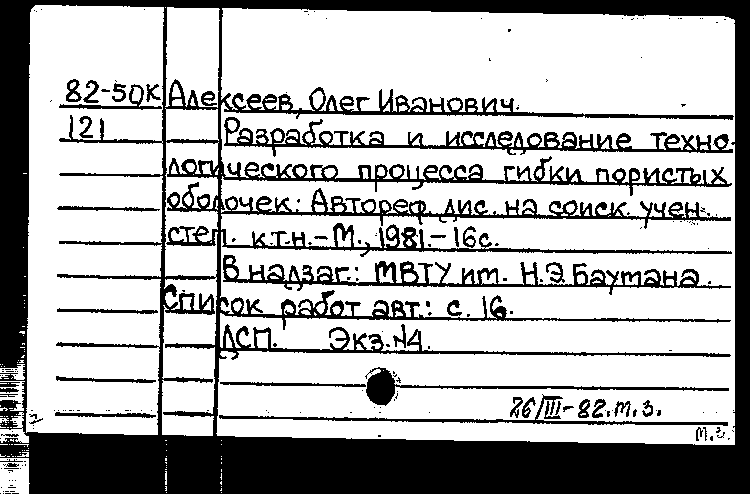 82-5ОК Алексеев, Олег Иванович.
121 Разработка и исследование техно-
логического процесса гибки пористых
оболочек: Автореф. дис. на соиск. учен.
степ. к.т.н. - М., 1981. - 16с.
В надзаг.: МВТУ им. Н.Э. Баумана.
Список работ авт.: с. 16.
ДСП. Экз. №4.
26/III-82. т.з.
т.з.